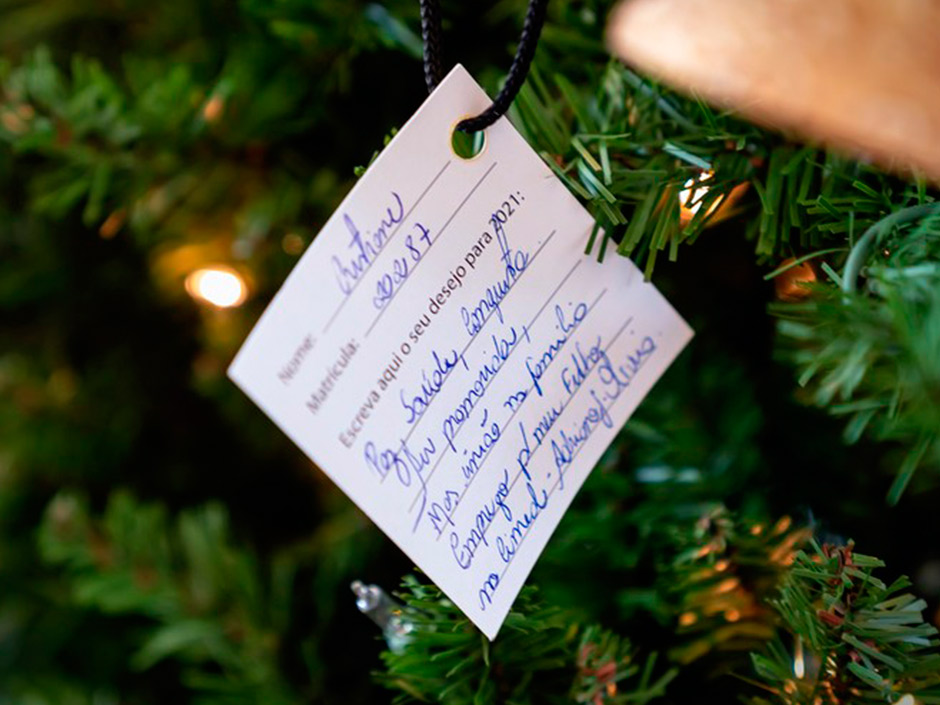 Nome: Cristiane
Matrícula: 202287
Escreva aqui o seu desejo para 2021:
Paz, Saúde, Conquista
Ser promovida,
Mas união na família
Emprego p/ meu Filho
na